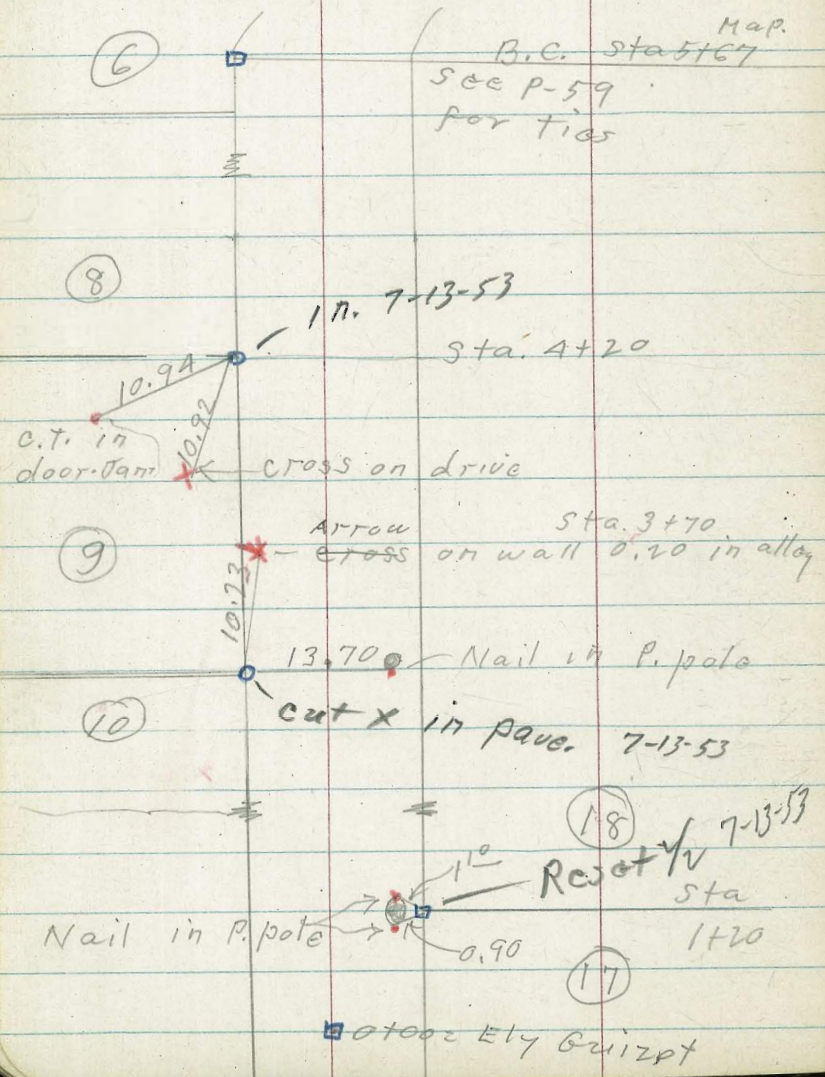 Map.
6
B.C. Sta 5+67
See P-59
for ties
8
I n. 7-13-53
Sta. 4+20
10.94
10.92
C.T. in
door Jam
cross on drive
Arrow
Sta. 3+70
9
cross on wall 0.20 in alley
10.23
13.70
Nail in P. pole
10
cut x in pave. 7-13-53
18
7-13-53
Reset
Sta
1+20
Nail in P. pole
0.90
17
0+00= Ely